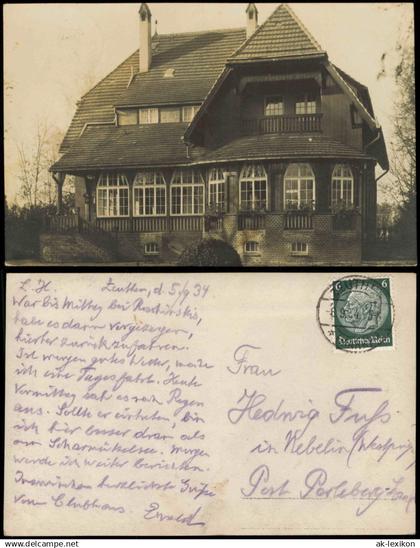 L. H. Zeuthen, d. 5/9 34
War bis Mittag bei
habe es dann vorgezogen,
hierher zurückzufahren.
Ist morgen gutes Wetter, mache
ich eine Tagesfahrt. Heute
Vormittag sah es nach Regen
aus. Sollte er eintreten, bin
ich hier besser dran als
am Scharmützelsee. Morgen
werde ich weiter berichten.
Inzwischen herzlichste Grüße
vom Clubhaus. Ewald
6 6
Frau
Hedwig Fuß
in Nebelin (Westprign.)
Post Perleberg-Land
ak-lexikon
© ak-lexikon.de